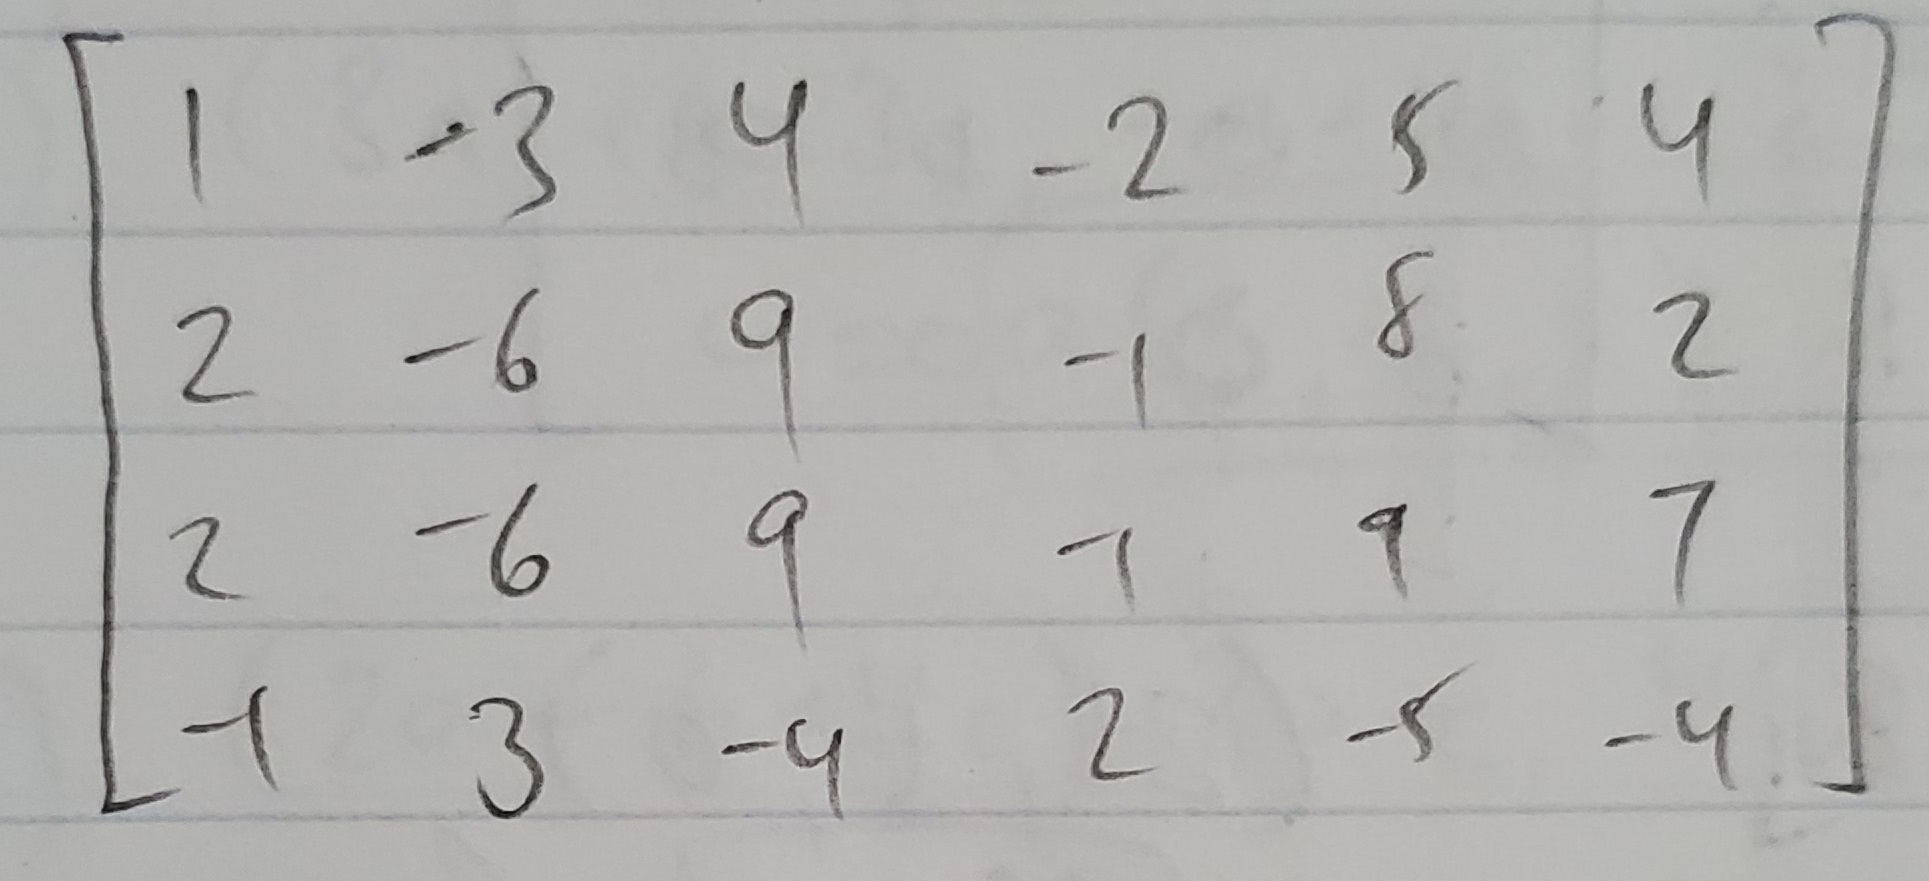 1 -3 4 -2 5 4
2 -6 9 -1 8 2
2 -6 9 -1 9 7
-1 3 -4 2 -5 -4